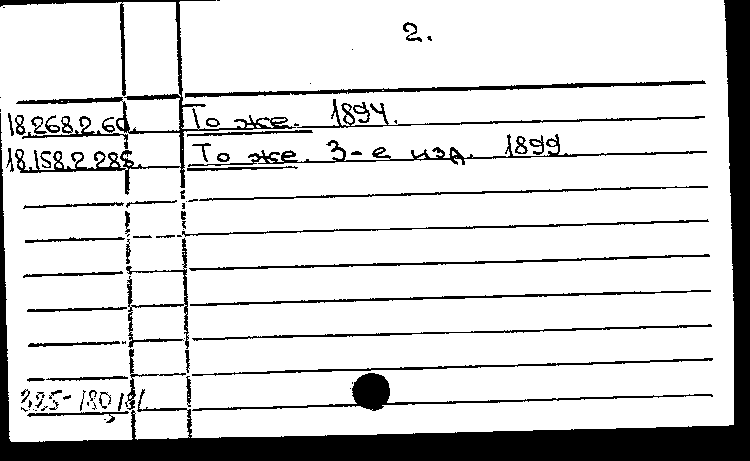 2.
18.268.2.60. То же. 1894.
18.158.2.285. То же. 3-е изд. 1899.
325-180,181